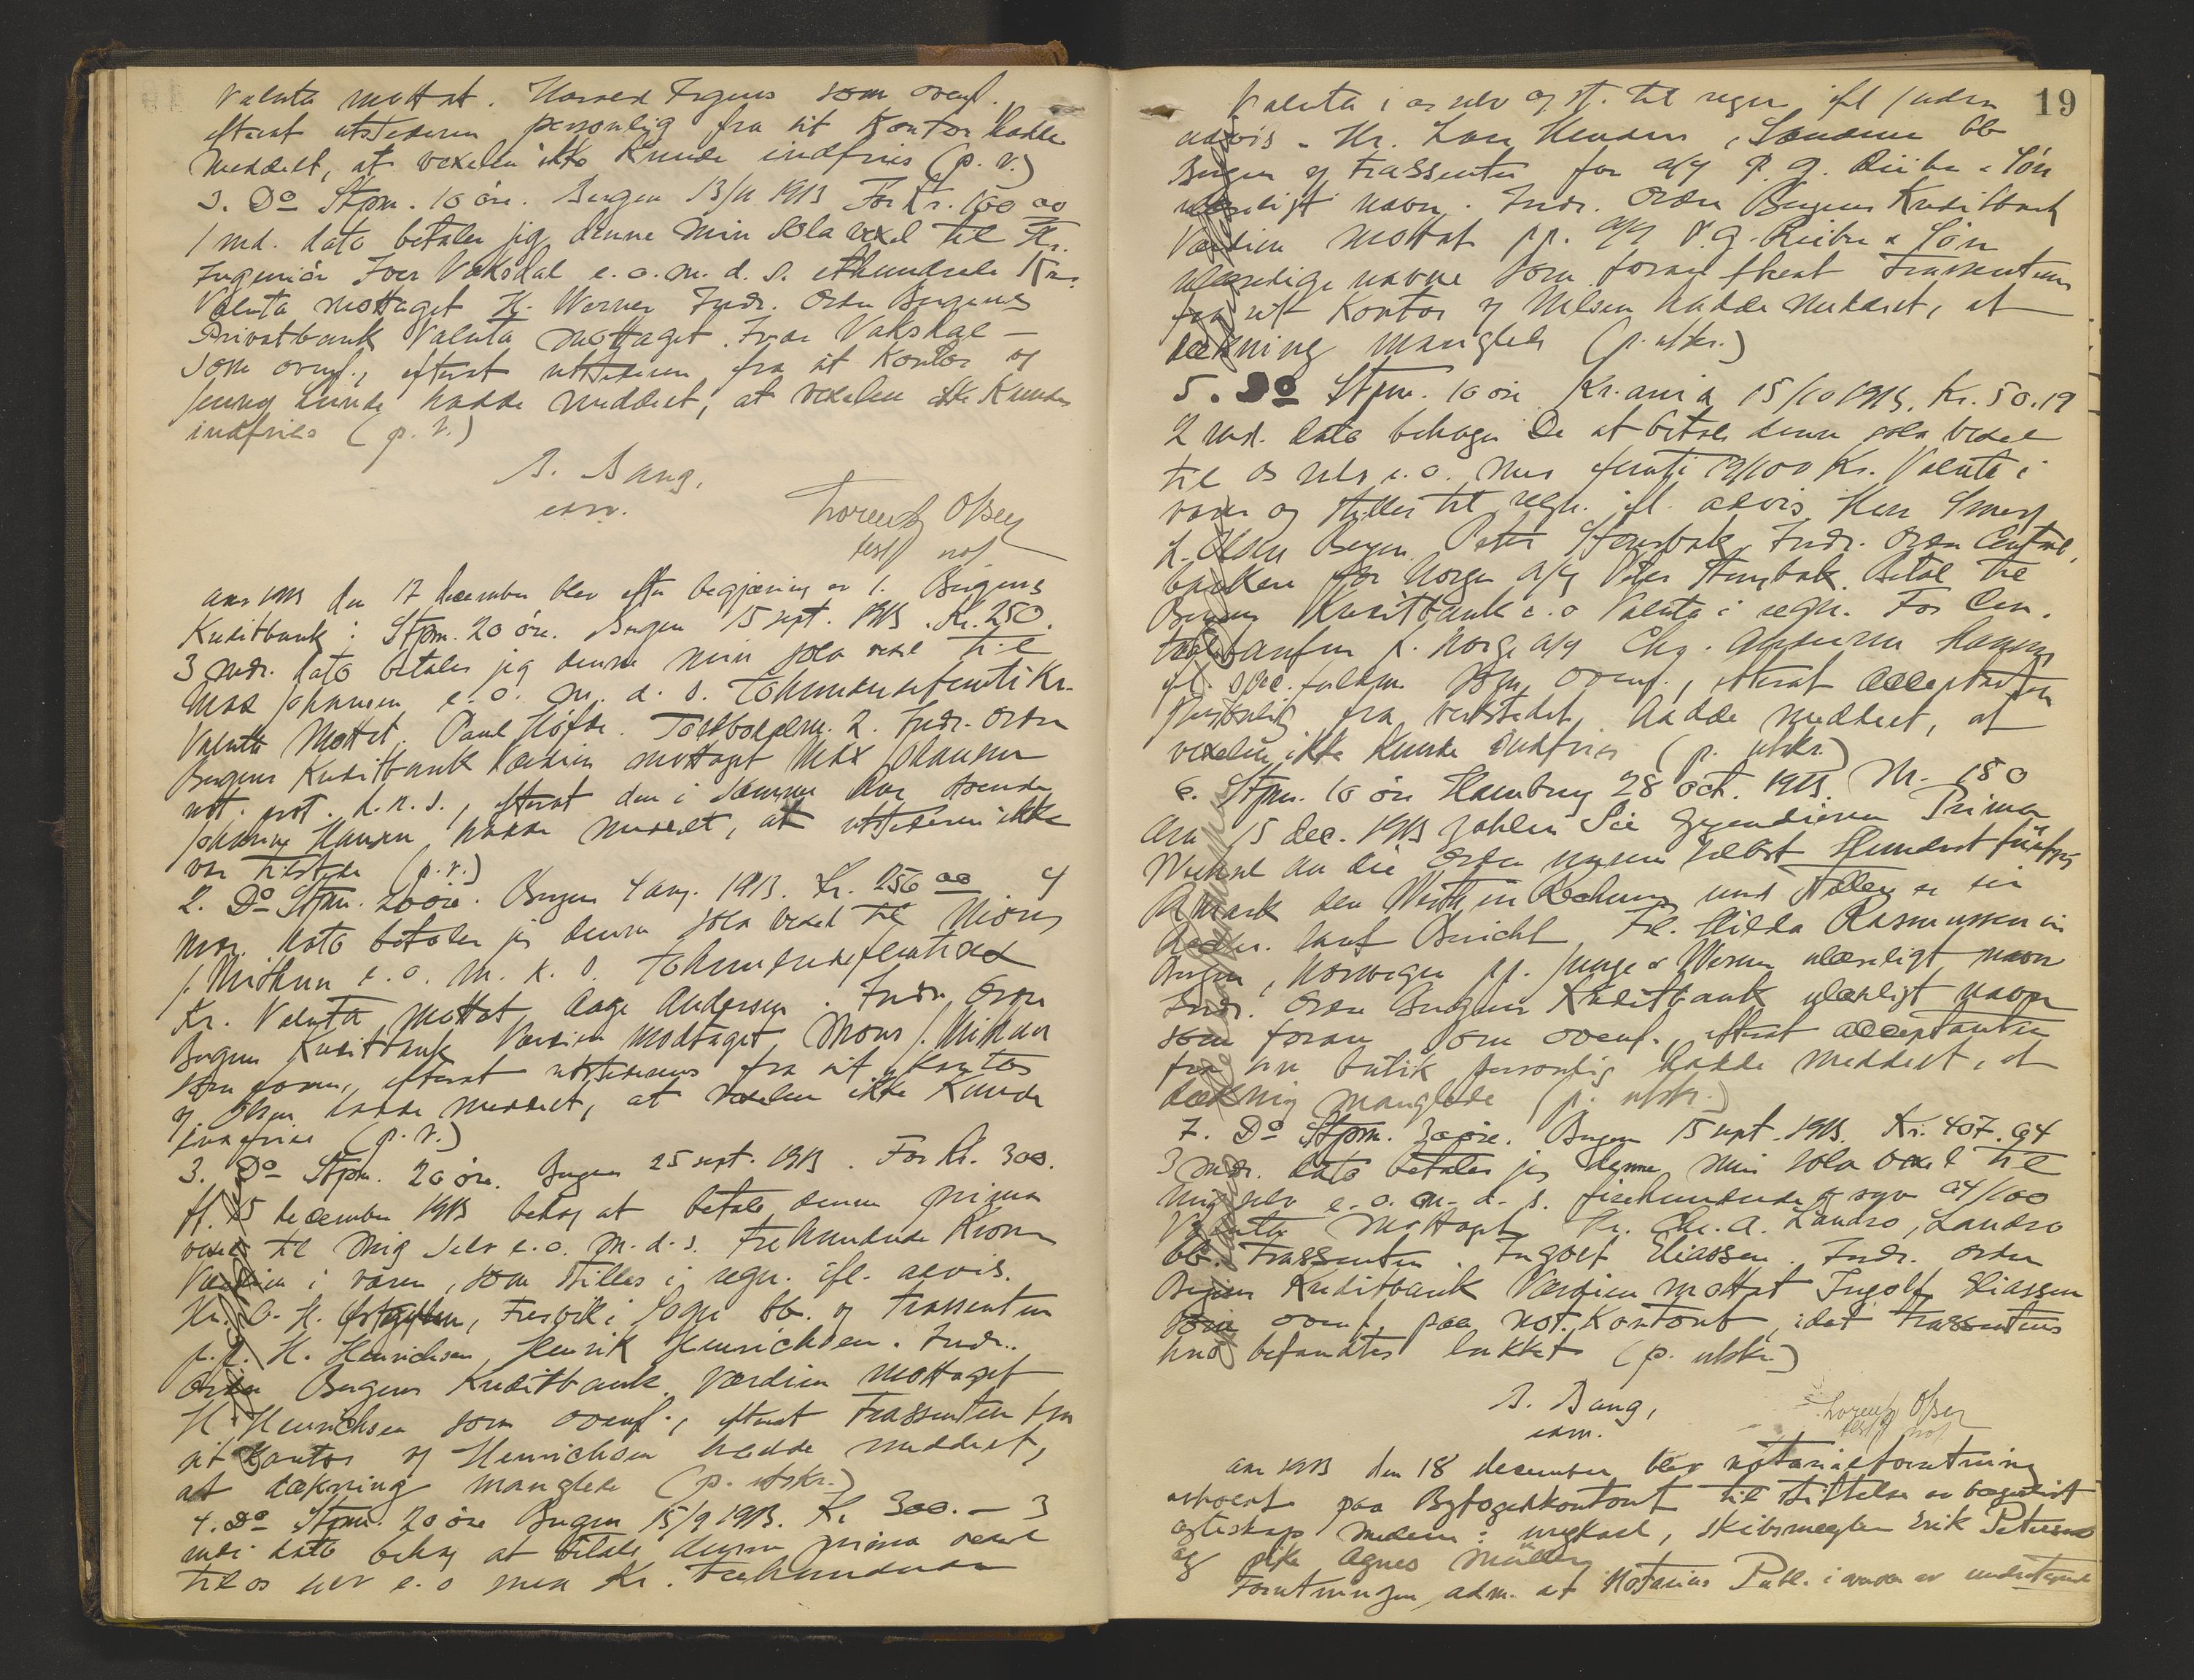 Valuta mottat. Harald Irgens som ovenf.
efterat utstederen personlig fra sit Kontor hadde
meddelt, at vexelen ikke kunde indfries (p. v.)
3. Do Stpm. 10 øre. Bergen 13/11 1913 For Kr. 100 00
1 md. dato betaler jeg denne min Sola vexel til Hr.
Ingeniör Ivar Vaksdal e. o. m. d. s. ethundrede Kr.
Valuta mottaget H. Werner Indr. Ordre Bergens
Privatbank Valuta mottaget Ivar Vaksdal –
som ovenf., efterat utstederen fra sit Kontor og
hadde meddelt, at vexelen ikke kunde
indfries (p. v.)
B. Bang,
exam.
Lorentz Olsen
test not
Aar 1913 den 17 december blev efter begjæring av 1. Bergens
Kreditbank: Stpm. 20 øre. Bergen 15 sept. 1913. Kr. 250.
3 mdr. dato betaler jeg denne min sola vexel til
Max Johansen e. o. m. d. s. Tohundredefemti Kr.
Valuta Mottat. Paul Höfde. Toldbodalm. 2. Indr. Ordre
Bergens Kreditbank Værdien mottaget Max Johansen
not. prot. d. n. s., efterat den i samme boende
Hansen hadde meddelt, at utstederen ikke
var tilstede (p. v.)
2. Do Stpm. 20 øre. Bergen 4 aug. 1913. Kr. 250 00 4
mdr. dato betaler jeg denne sola vexel til Mons
J. Mithun e. o. m. d. s. Tohundredefemti
Kr. Valuta mottat Aage Andersen. Indr. Ordre
Bergens Kreditbank Værdien modtaget Mons J. Mithun
som foran, efterat utstederens fra sit Kontor
og Olsen hadde meddelt, at vexelen ikke kunde
indfries (p. v.)
3. Do Stpm. 20 øre. Bergen 25 sept. 1913. For Kr. 300.
pr. 15 december 1913 behag at betale denne prima
vexel til mig selv e. o. m. d. s. Trehundrede Kroner
Værdien i varer, som stilles i regn. ifl. advis.
Hr. O. H. Fresvik i Sogn bb. og Trassenten
p. p. H. Henrichsen Henrik Henrichsen. Indr.
Ordre Bergens Kreditbank Værdien mottaget
H. Henrichsen som ovenf., efterat Trassenten fra
sit Kontor og Henrichsen hadde meddelt,
at dækning manglede (p. utskr.)
4. Do Stpm. 20 øre Bergen 15/9 1913. Kr. 300. – 3
mdr dato behag at betale denne prima vexel
til os selv e. o men Kr. Trehundrede
19
Valuta i os selv og st. til regn. ifl uden
advis. Hr. Lars Sandene bb
Bergen og trassenten for a/s P. G. Rieber & Søn
ulæseligt navn. Indr. Ordre Bergens Kreditbank
Værdien Mottat pp. a/s P. G. Rieber & Søn
ulæselige navne som foran efterat Trassenten
fra sit Kontor og Nilsen hadde meddelt, at
dækning manglede (p. utskr.)
5. Do Stpm. 10 øre Kr.ania 15/10 1913. Kr. 50.19
2 md. dato behager De at betale denne sola vexel
til os selv e. o. med femti 19/100 Kr. Valuta i
varer og stilles til regn. ifl. advis Herr
L. Olsen Bergen. Peter Stensbak Indr. Ordre Central
banken for Norge a/s Peter Stensbak. Betal til
Bergens Kreditbank e. o Valuta i regn. For Cen.
tralbanken f. Norge a/s Chr. Andersen
ifl. spec. fuldm. som ovenf., efterat acceptanten
personlig fra verkstedet, hadde meddelt, at
vexelen ikke kunde indfries (p. utskr.)
6. Stpm. 10 øre Hamburg 28 oct. 1913. M. 150
Am 15 dec. 1913 zahlen Sie gegen diesen Prima
Wechsel an die Order unserer selbst Hundertfünfzig
Mark den Werth in Rechnung und stellen es in
Rechn. laut Bericht Frl. Hilda Rasmussen in
Bergen, Norwegen pp. Junge & Werner ulæseligt navn
Indr. Ordre Bergens Kreditbank ulæseligt navn
som foran som ovenf., efterat acceptanten
fra sin butik personlig hadde meddelt, at
dækning manglede (p. utskr.)
7. Do Stpm. 30 øre. Bergen 15 sept. 1913. Kr. 407.94
3 mdr. dato betaler jeg denne min sola vexel til
mig selv e. o. m. d. s. firehundrede og syv 94/100
Valuta Mottaget Hr. Chr. A. Landro, Landro
bb. Trassenten. Ingolf Eliassen. Indr. Ordre
Bergens Kreditbank Værdien mottat Ingolf Eliassen
som ovenf. paa Not. Kontoret, idet trassentens
hus befandtes lukket (p. utskr.)
B. Bang,
exam.
Lorentz Olsen
test not
Aar 1913 den 18 december blev notarialforretning
avholdt paa Byfogedkontoret til stiftelse av borgerligt
egteskap mellem: ungkarl, skibsmægler Erik Petersen
og pike Agnes Müller
Forretningen adm. af Notarius Publ. i overvær av undertegnede